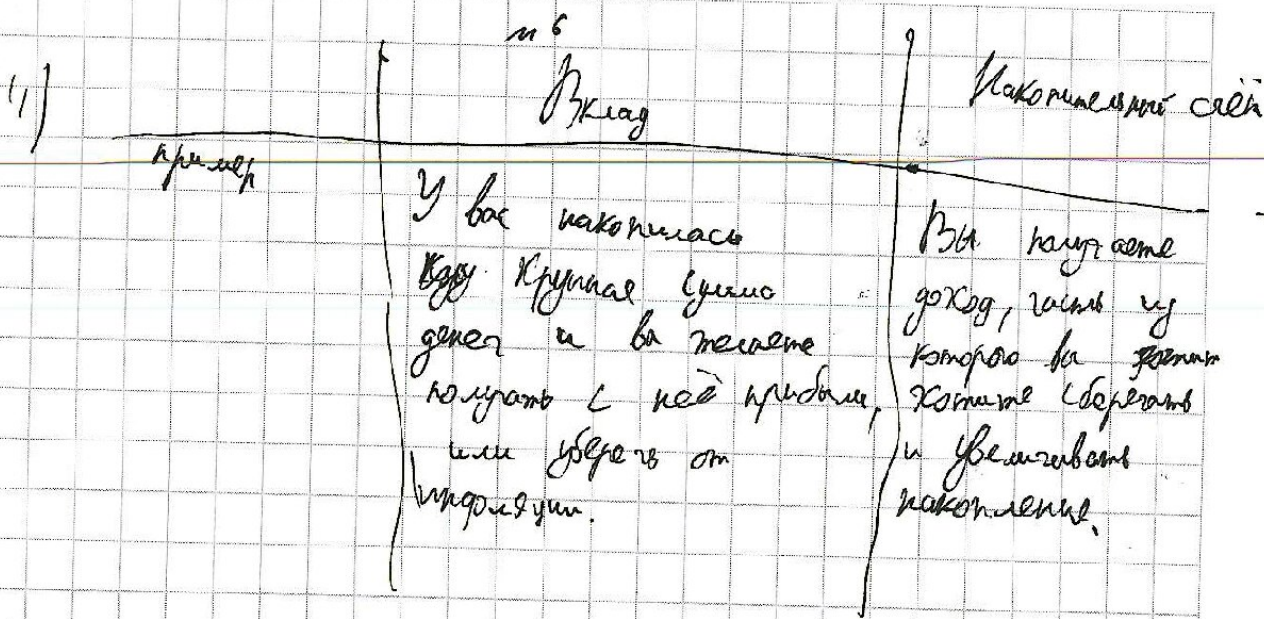 № 6
1) Вклад Накопительный счёт
пример
У вас накопилась
крупная сумма
денег и вы желаете
получать с неё прибыль,
или уберечь от
инфляции.
Вы получаете
доход, часть из
которого вы
хотите сберегать
и увеличивать
накопления.